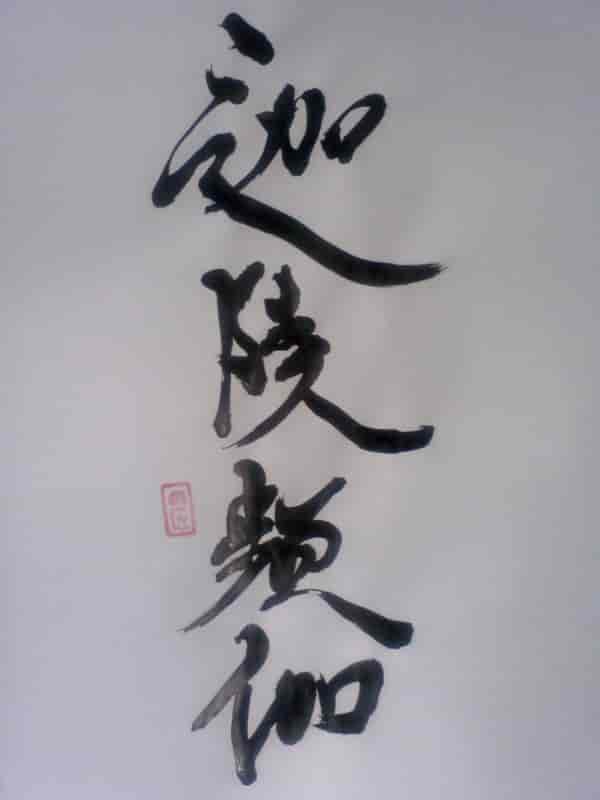 迦陵頻伽